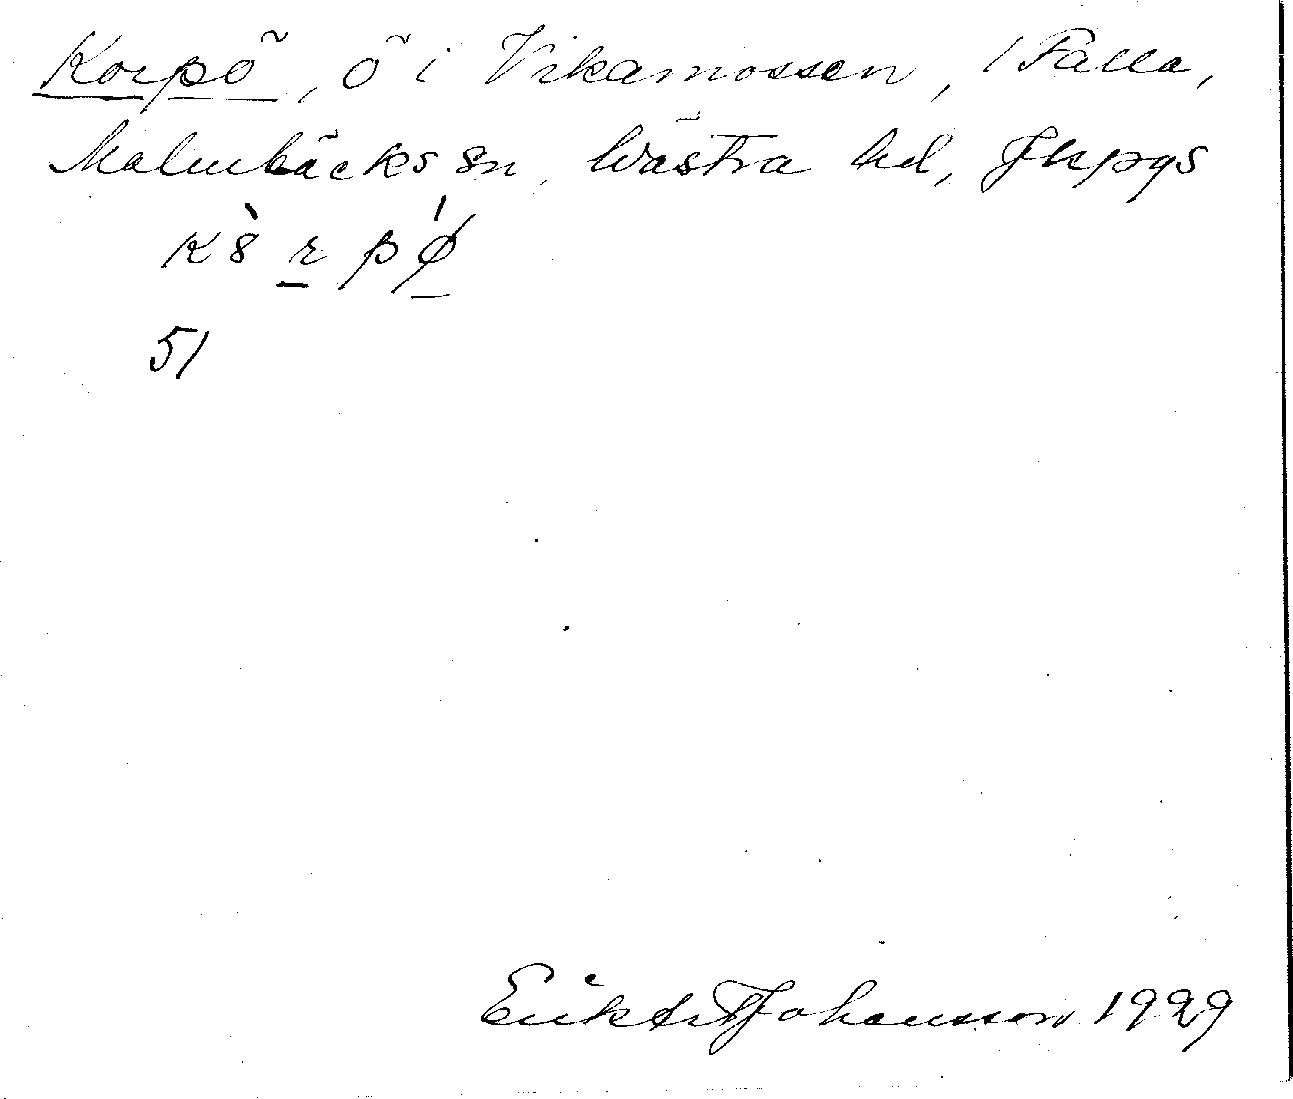 Korpö, ö i Vikamossen, 1 Falla,
Malmbäcks sn, Västra hd, Jkpgs
51
Johansson 1929